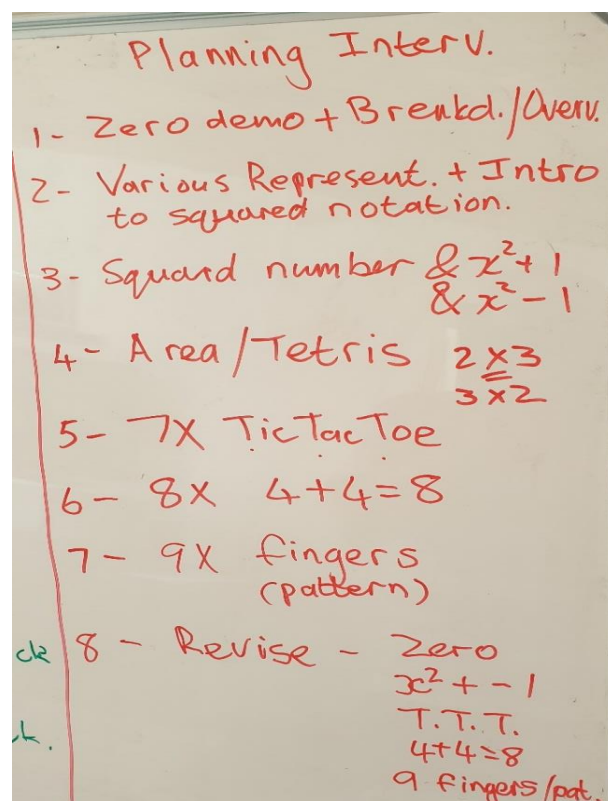 Planning Interv.
1- Zero demo + Breakd./Overv.
2- Various Represent. + Intro
to squared notation.
3- Squard number & x²+1
& x²-1
4- Area/Tetris 2x3
3x2
5- 7X TicTacToe
6- 8X 4+4=8
7- 9X fingers
(pattern)
ck 8- Revise - Zero
x² + - 1
k. T.T.T.
4+4=8
9 fingers/pat.